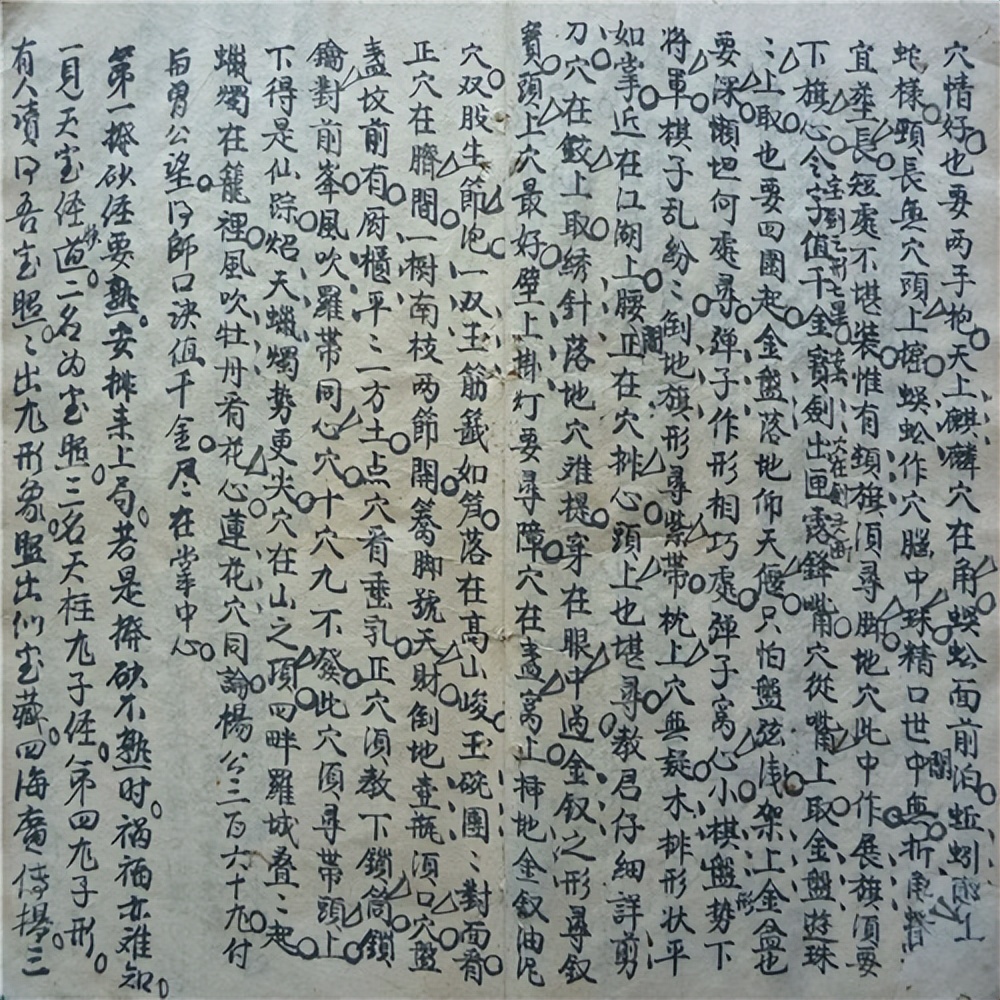 穴情好也要两手抱天上麒麟穴在角蜈蚣面前泊蚯蚓
蛇样頸長無穴頭上擂蜈蚣作穴腦中珠精口世中無折角
宜葬長短處不堪裝惟有頭旗頂尋脚地穴此中作展旗須要
下旗心令字值千金寶劍出匣露鋒嘴穴從嘴上取金盤遊珠
：上取也要四圍起金盤落地仰天偃只怕盤弦淺架上金盆也
要深懶坦何處尋彈子作形相巧處彈子窩心小棋盤势下
將軍棋子乱紛：倒地旗形尋紫帶枕上穴無疑木排形状平
如掌近在江湖上腰正在穴排心頭上也堪尋教君仔細詳剪
刀穴在鉸上取綉針落地穴难提穿在眼中過金釵之形尋釵
寶頭上穴最好壁上掛灯要尋障穴在盞窩上掃地金釵油
穴双股生節泡一双玉筋籤如筍落在高山峻玉碗團：對面看
正穴在臍間一樹南枝两節開蓦脚號天財倒地壺瓶須口穴盤
盞坟前有厨櫃平：二方土点穴看垂乳正穴須教下鎖筒鎖
鑰對前峯風吹羅帶同心穴十穴九不發此穴須尋帶頭上
下得是仙踪炤天蠟燭勢更尖穴在山之頂四畔羅城叠：起
蠟燭在籠裡風吹牡丹看花心蓮花穴同論楊公三百六十九付
与曾公望后師口决值千金尽：在掌中心
第一撥砂经要熟安排来上局若是撥砂不熟时祸福亦难知
一見天宝经道二名为宝照三名天柱九子经第四九子形
有人讀得吾宝照：出九形象照出仙宝藏四海廣傳揚三